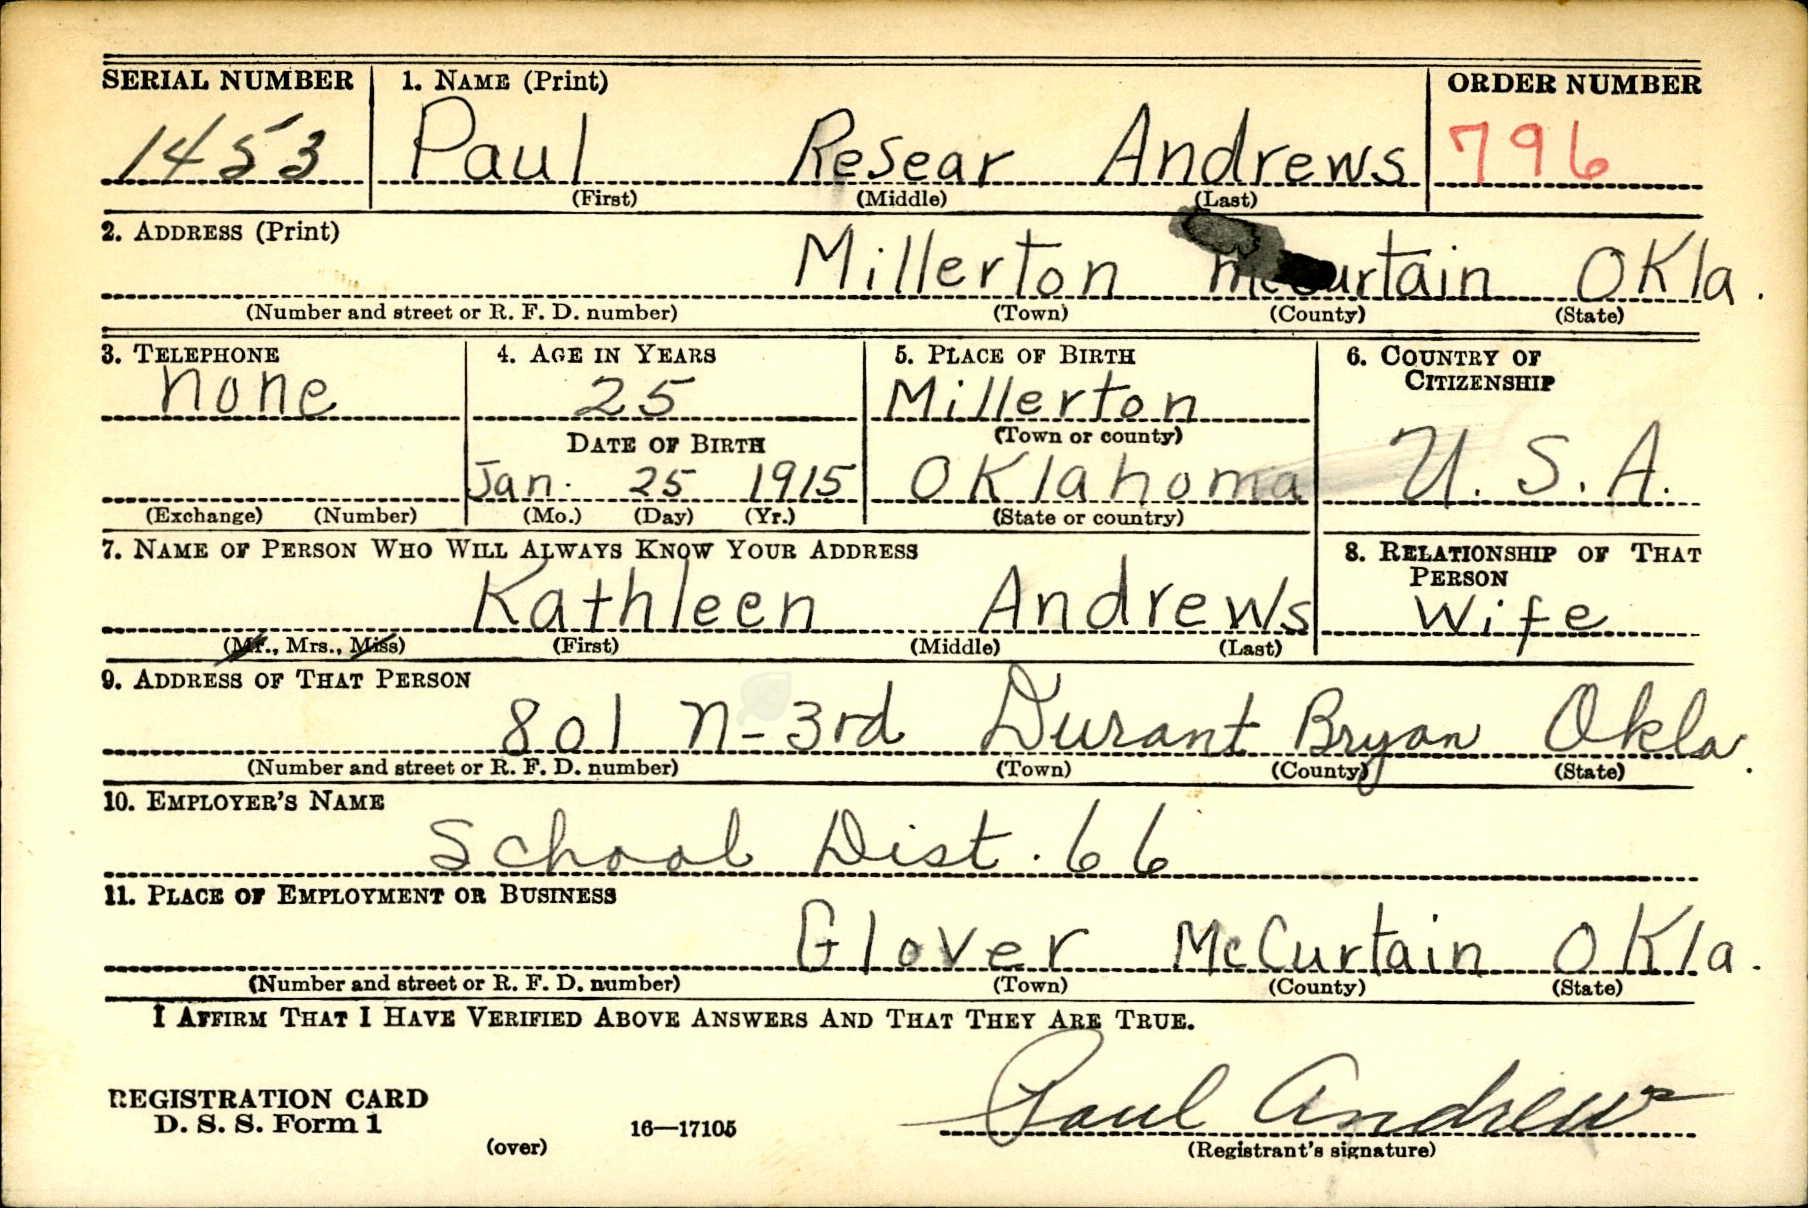 SERIAL NUMBER 1. NAME (Print) ORDER NUMBER
1453 Paul Resear Andrews 796
(First) (Middle) (Last)
2. ADDRESS (Print)
Millerton McCurtain OKla.
(Number and street or R. F. D. number) (Town) (County) (State)
3. TELEPHONE 4. AGE IN YEARS 5. PLACE OF BIRTH 6. COUNTRY OF
CITIZENSHIP
none 25 Millerton
DATE OF BIRTH (Town or county)
Jan. 25 1915 OKlahoma U. S. A.
(Exchange) (Number) (Mo.) (Day) (Yr.) (State or country)
7. NAME OF PERSON WHO WILL ALWAYS KNOW YOUR ADDRESS 8. RELATIONSHIP OF THAT
PERSON
Kathleen Andrews Wife
(Mr., Mrs., Miss) (First) (Middle) (Last)
9. ADDRESS OF THAT PERSON
801 N-3rd Durant Bryan Okla.
(Number and street or R. F. D. number) (Town) (County) (State)
10. EMPLOYER'S NAME
School Dist. 66
11. PLACE OF EMPLOYMENT OR BUSINESS
Glover McCurtain OKla.
(Number and street or R. F. D. number) (Town) (County) (State)
I AFFIRM THAT I HAVE VERIFIED ABOVE ANSWERS AND THAT THEY ARE TRUE.
REGISTRATION CARD
D. S. S. Form 1
(over) 16—17105
Paul Andrews
(Registrant's signature)